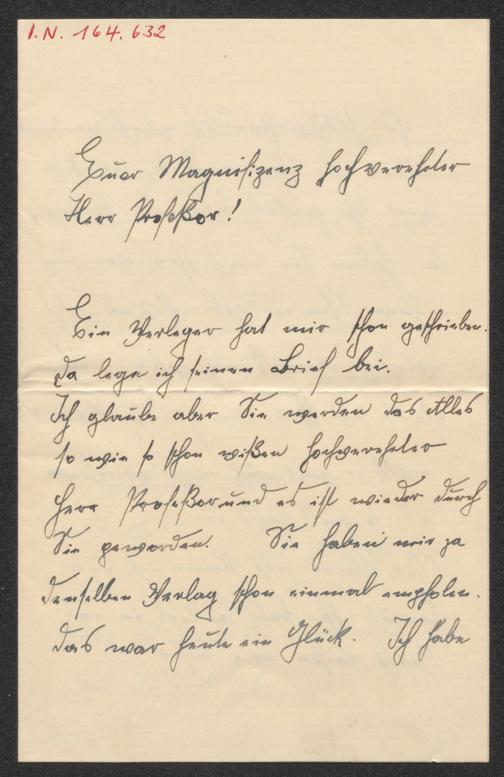 I.N. 164.632
Euer Magnifizenz hochverehrter
Herr Profeßor!
Ein Verleger hat mir schon geschrieben.
Da lege ich seinen Brief bei.
Ich glaube aber Sie werden das Alles
so wie so schon wißen hochverehrter
Herr Profeßor und es ist wieder durch
Sie geworden. Sie haben mir ja
denselben Verlag schon einmal empfolen.
Das war heute ein Glück. Ich habe